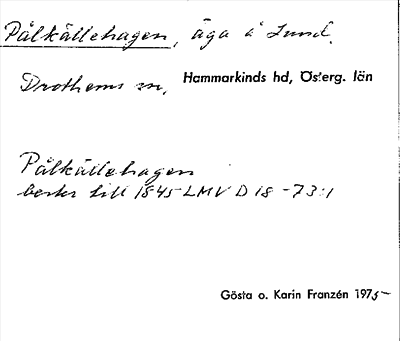 Pålkällehagen, äga å Lund.
Drothems sn, Hammarkinds hd, Österg. län
Pålkällehagen
beskr till 1845 LMV D 18-73:1
Gösta o. Karin Franzén 1975